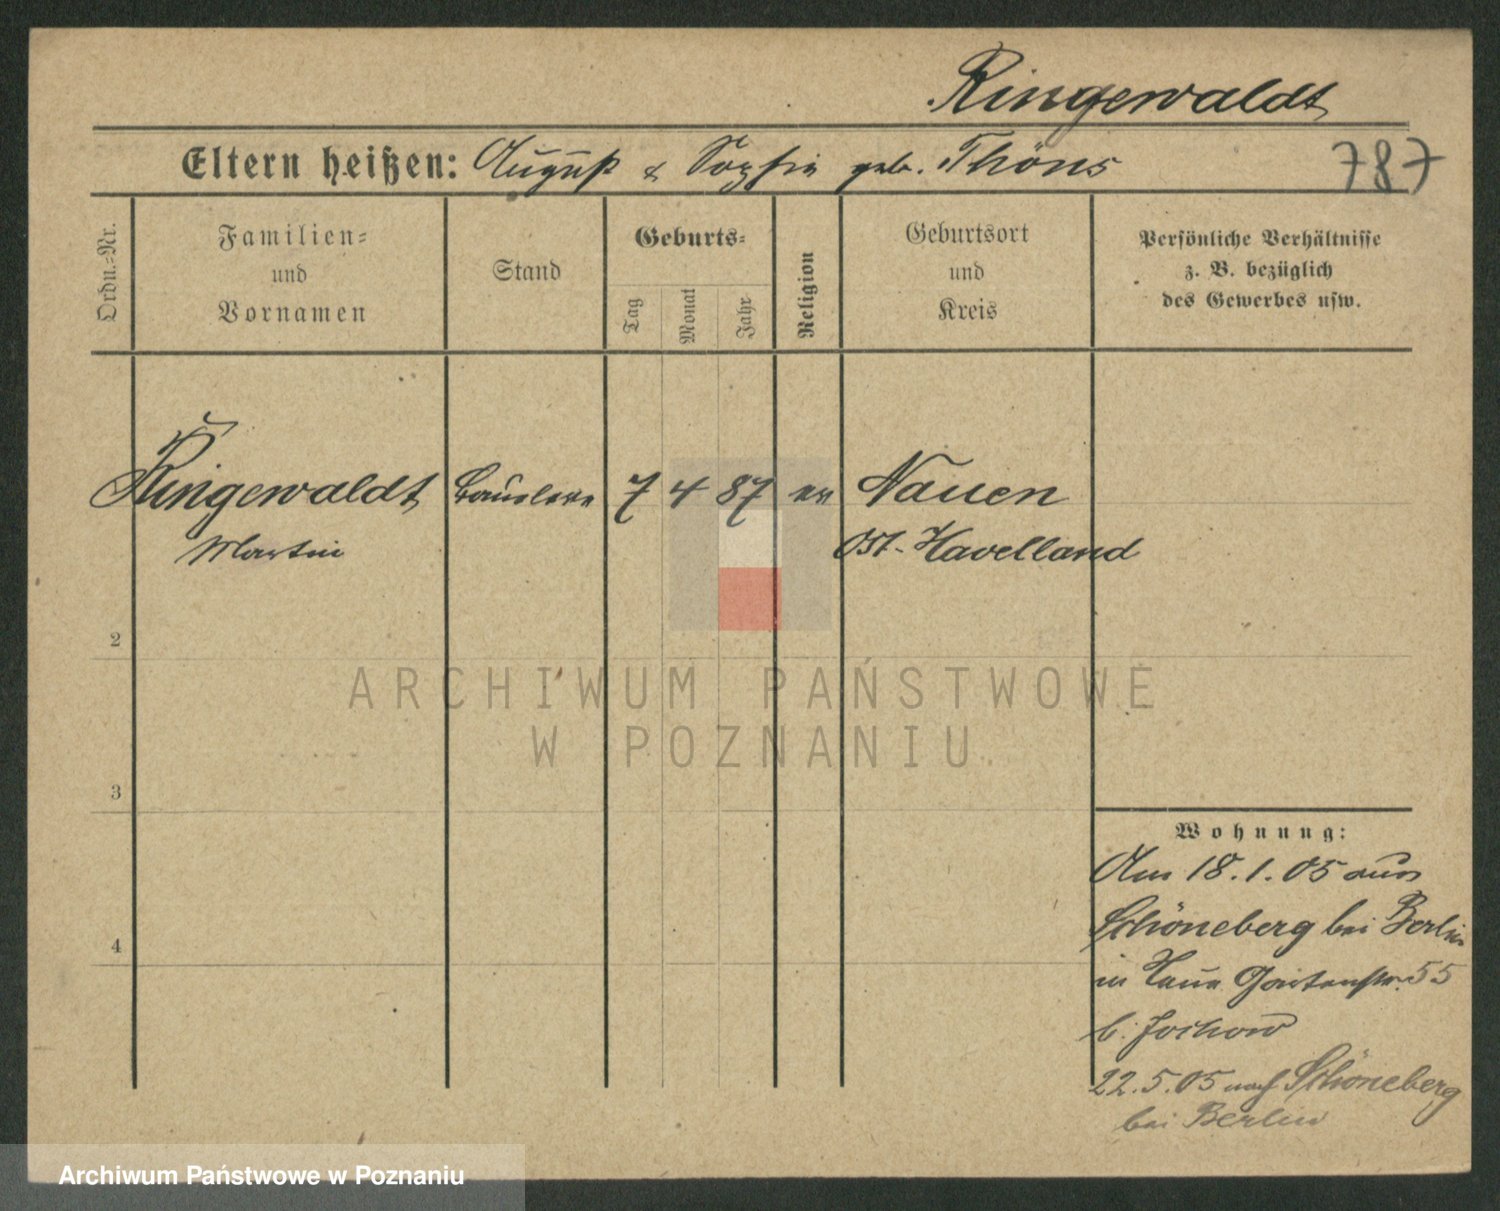 Ringewaldt
Eltern heißen: August & Sophie geb. Thöns
787
Ordn.=Nr.
Familien=
und
Vornamen
Stand
Geburts=
Tag
Monat
Jahr
Religion
Geburtsort
und
Kreis
Persönliche Verhältnisse
z. B. bezüglich
des Gewerbes usw.
Ringewaldt
7 4 87 ev
Nauen
Martin
Ost-Havelland
2
3
4
Wohnung:
Am 18.1.05 aus
Schöneberg bei Berlin
in Neue Gartenstr. 55
b. Jochow
22.5.05 nach Schöneberg
bei Berlin
ARCHIWUM PAŃSTWOWE
W POZNANIU
Archiwum Państwowe w Poznaniu